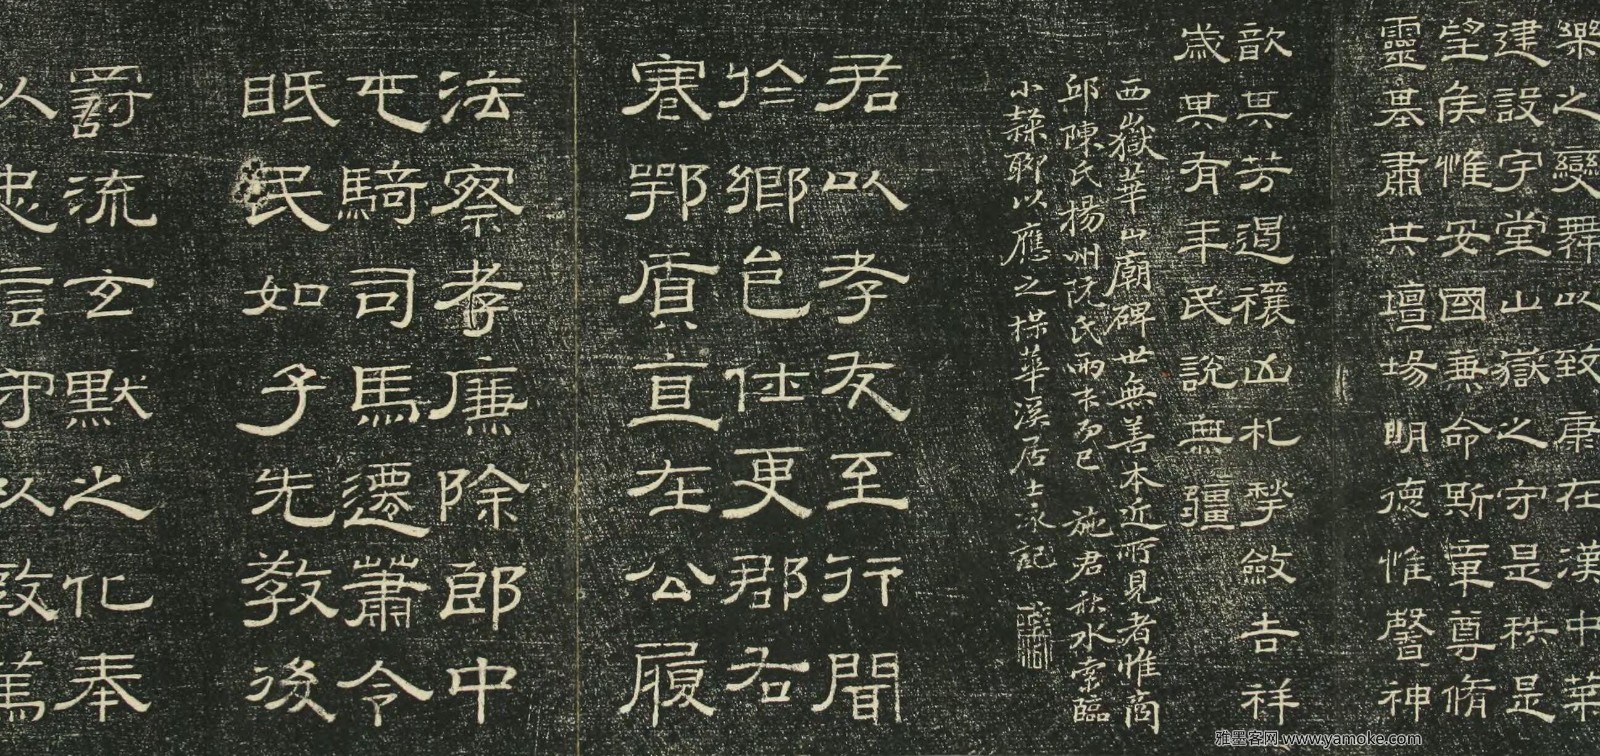 樂之變舞以致康在漢中葉
建設宇堂山嶽之守是秩是
望侯惟安國兼命斯章尊脩
靈基肅共壇場明德惟馨神
歆其芳遏禳凶札揫斂吉祥
歲其有年民說無疆
西嶽華山廟碑世無善本近所見者惟商
邱陳氏揚州阮氏兩本而已 施君秋水索臨
小隸聊以應之楳華溪居士泳記
君以孝友至行聞
於鄉邑仕更郡右
蹇鄂盾亶在公履
法察孝廉除郎中
屯騎司馬遷蕭令
眂民如子先教後
罰流玄默之化奉
以忠守以篤
雅墨客网 www.yamoke.com